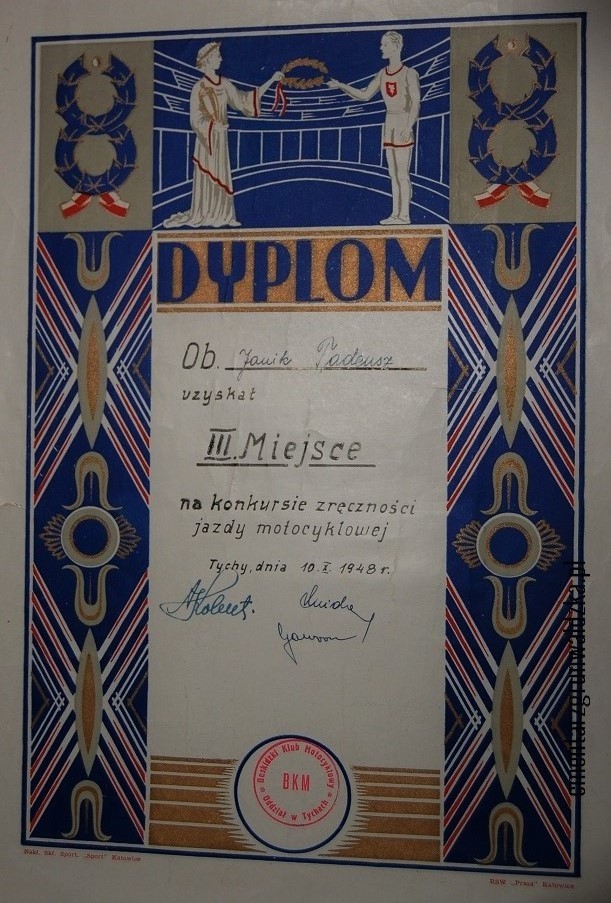 DYPLOM
Ob. Janik Tadeusz
uzyskał
III. Miejsce
na konkursie zręczności
jazdy motocyklowej
Tychy, dnia 10. X. 1948 r.
Beskidzki Klub Motocyklowy
BKM
Oddział w Tychach
Nakł. Skł. Sport. „Sport" Katowice
RSW „Prasa" Katowice